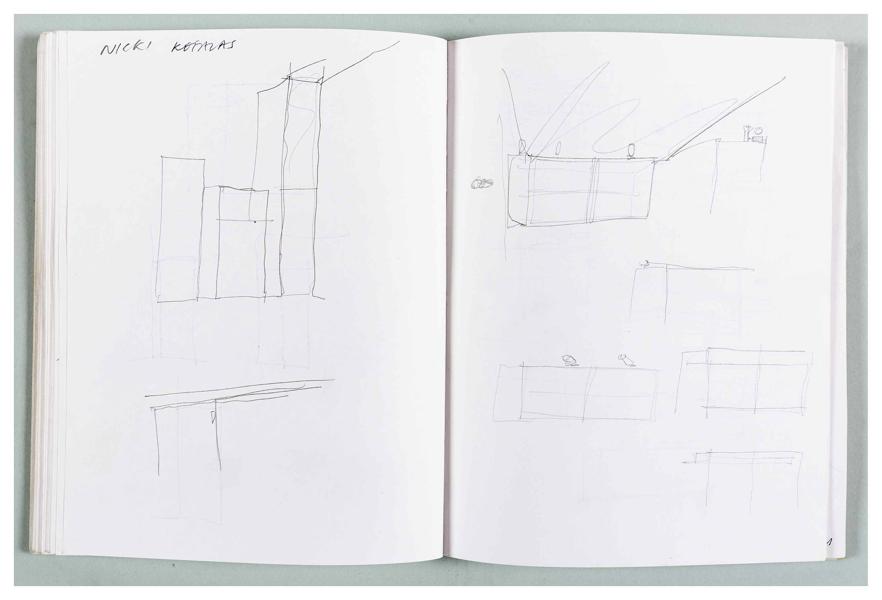 NICKI KEFALAS